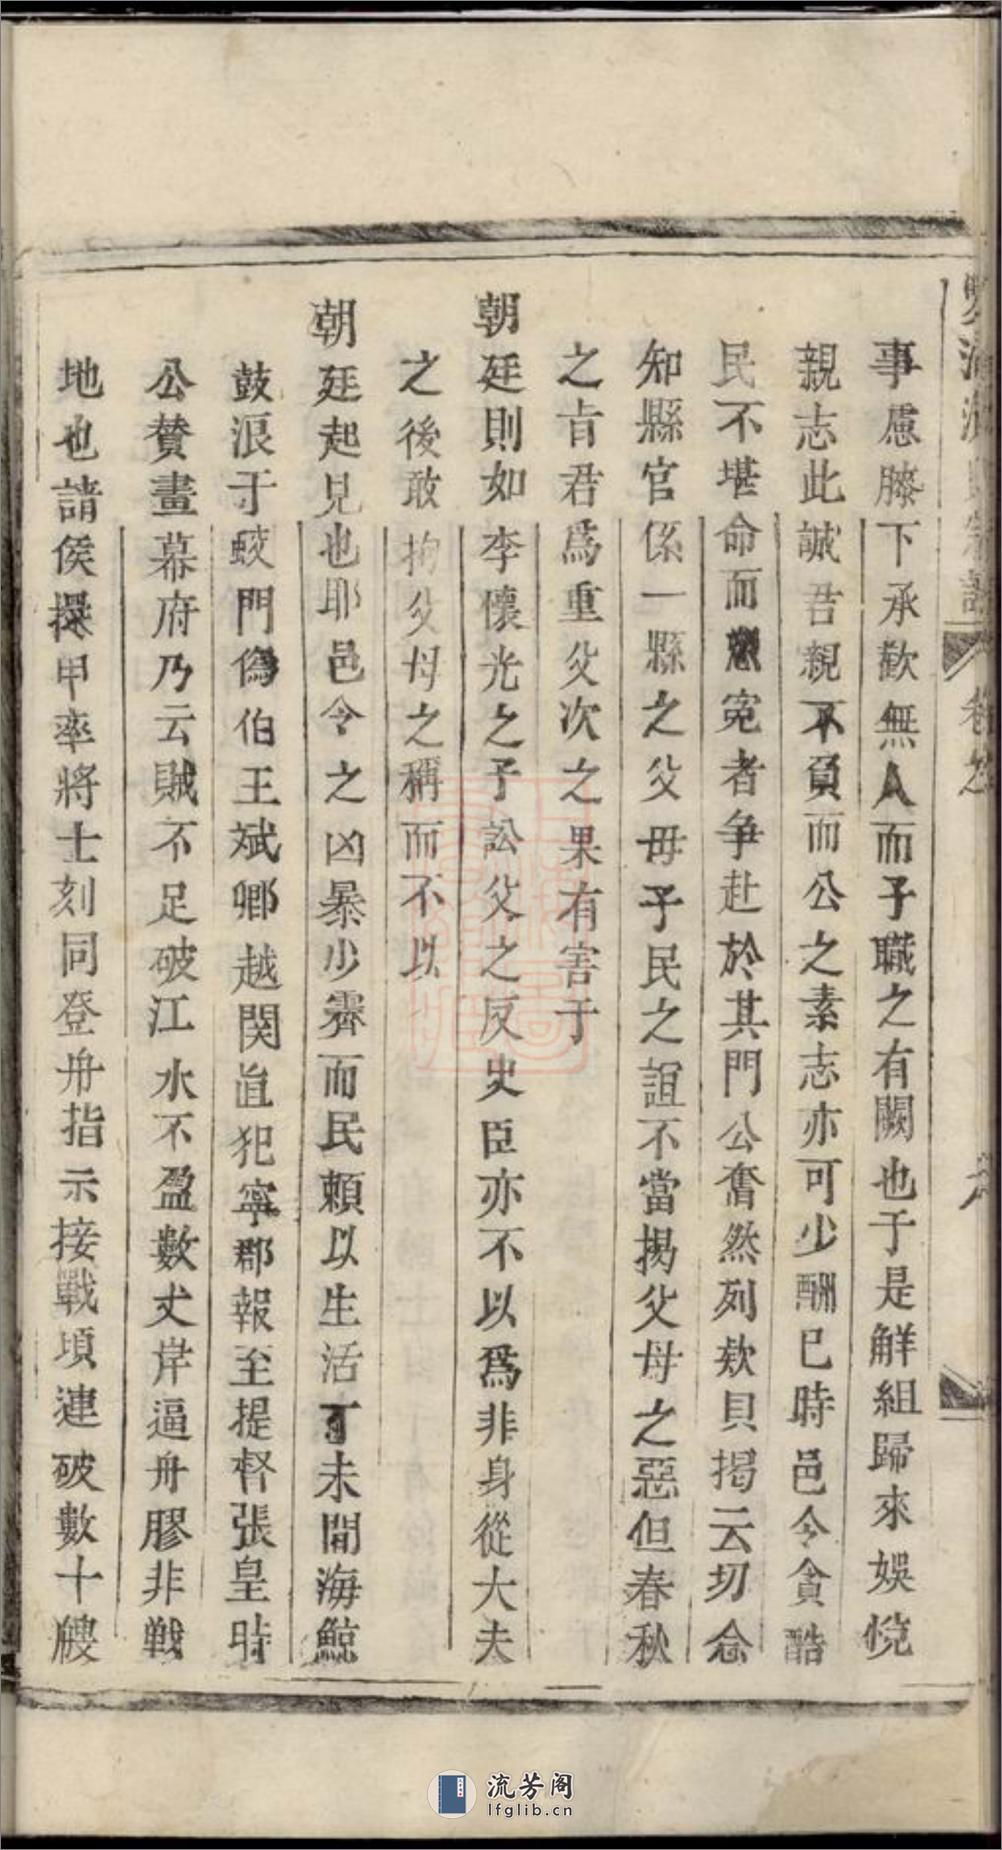 事慮膝下承歡無人而子職之有闕也于是觧組歸來娛悅
親志此誠吾親不負而公之素志亦可少酬已時邑令貪酷
民不堪命而愬寃者争赴於其門公奮然列欵具揭云切念
知縣官係一縣之父母子民之誼不當揭父母之惡但春秋
之旨君爲重父次之果有害于
朝廷則如李懷光之子訟父之反史臣亦不以爲非身從大夫
之後敢拘父母之稱而不以
朝廷起見也耶邑令之凶暴少霽而民賴以生活丁未間海鯨
鼓浪于蛟門僞伯王斌卿越関直犯寧郡報至提督張皇時
公賛畫幕府乃云賊不足破江水不盈數丈岸逼舟膠非戦
地也請侯擐甲率將士刻同登舟指示接戰項連破數十艘
卷之
流芳阁
lfglib.cn